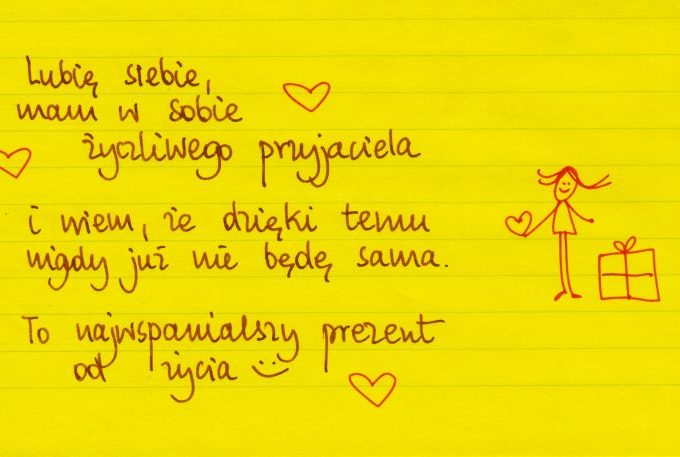 Lubię siebie,
mam w sobie
życzliwego przyjaciela
i wiem, że dzięki temu
nigdy już nie będę sama.
To najwspanialszy prezent
od życia :)